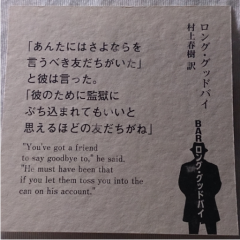 ロング・グッドバイ
村上春樹 訳
「あんたにはさよならを
言うべき友だちがいた」
と彼は言った。
「彼のために監獄に
ぶち込まれてもいいと
思えるほどの友だちがね」
"You've got a friend
to say goodbye to," he said.
"He must have been that
if you let them toss you into the
can on his account."
BAR ロング・グッドバイ